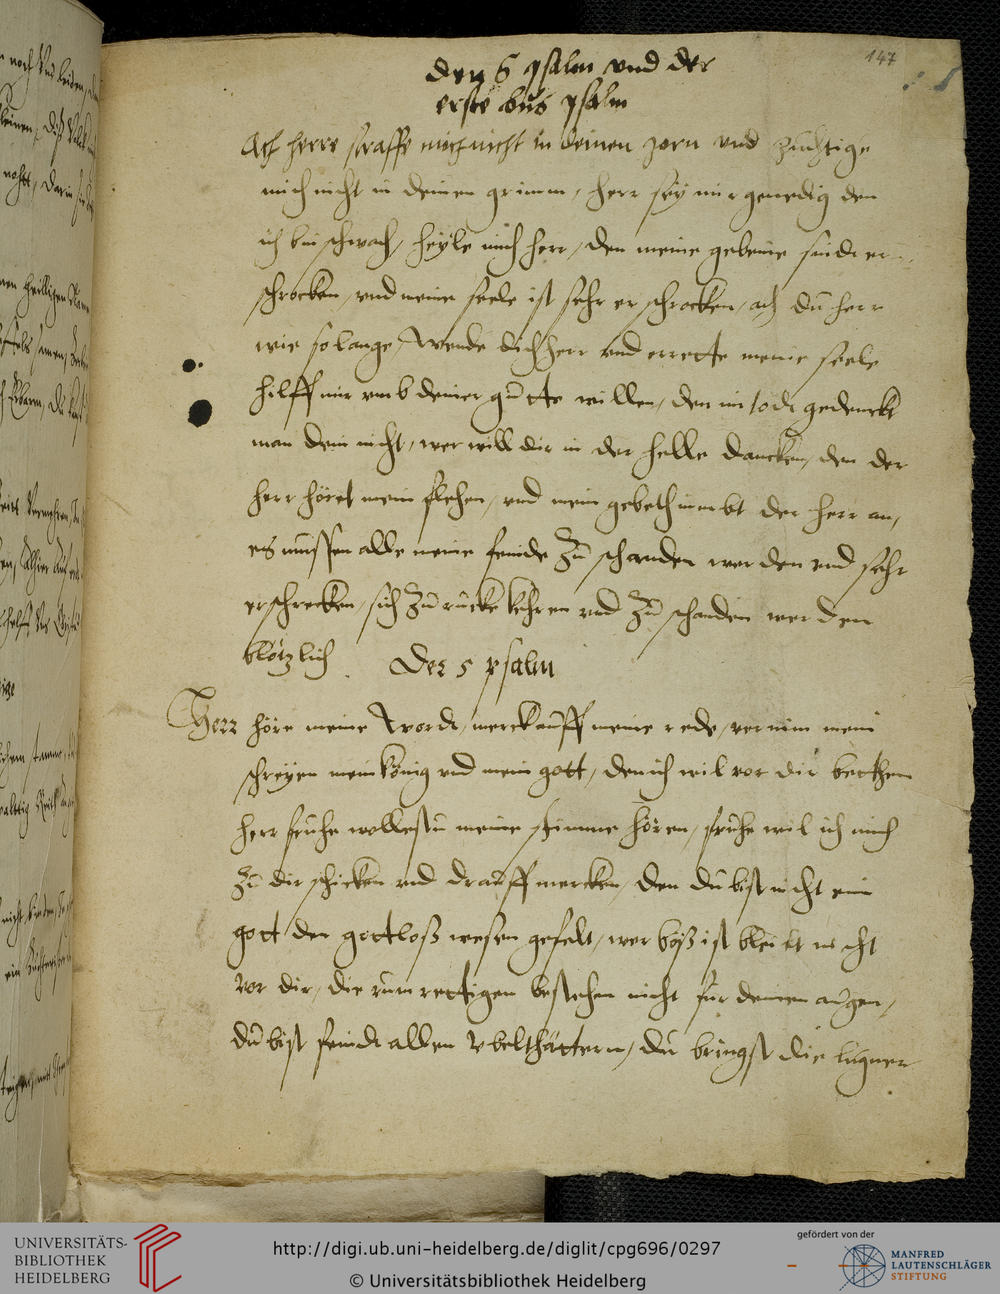 147
den 6 psalm vnd der
erste bus psalm
Ach herre straffe mich nicht in deinen zorn vnd zuchtige
mich nicht in deinen grimm, herr sey mir genedig den
ich bin schwach, heyle mich herr, den meine gebeine sindt er
schrocken, vnd meine seele ist sehr er schrocken, ach du herr
wie so lange, Wende dich herr vnd errette meine seele
hilff mir vmb deiner gutte willen, den im todt gedenckt
man dein nicht, wer will dir in der helle dancken, den der
herr höret mein flehen, vnd mein gebeth nimbt der herr an,
es mussen alle meine feinde zu schanden werden vnd sehr
erschrecken, sich zu rucke kehren vnd zu schanden werden
blötzlich. Der 5 psalm
Herr höre meine Wordt, merck auff meine rede, vernim mein
schreyen mein könig vnd mein gott, den ich wil vor dir betthen
herr fruhe wollestu meine stimme hören, fruhe wil ich mich
zu dir schicken vnd drauff mercken, den du bist nicht ein
gott den gottloß wesen gefelt, wer böß ist bleibt nicht
vor dir, die rumrettigen bestehen nicht fur deinen augen,
du bist feindt allen vbelthättern, du bringst die lugner
UNIVERSITÄTS-
BIBLIOTHEK
HEIDELBERG
http://digi.ub.uni-heidelberg.de/diglit/cpg696/0297
© Universitätsbibliothek Heidelberg
gefördert von der
MANFRED
LAUTENSCHLÄGER
STIFTUNG